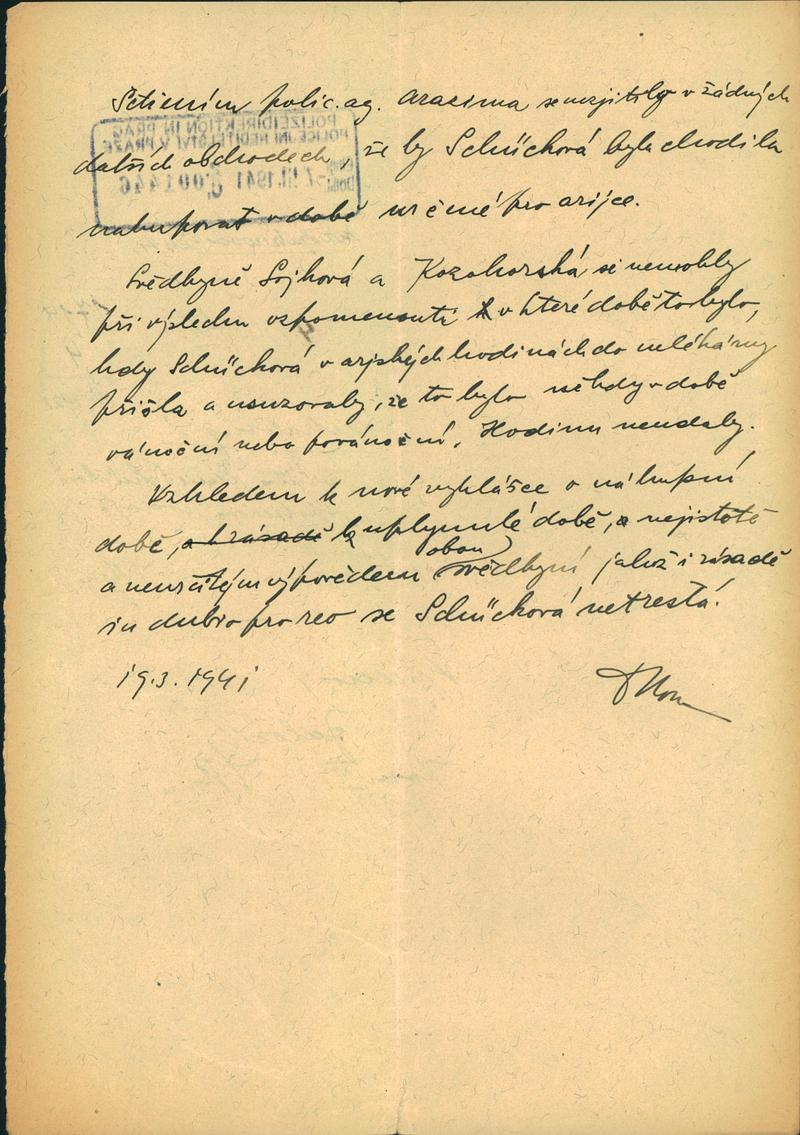 Šetřením polic. ag. Arazima se nezjistilo v žádných
dalších obchodech, že by Schücková byla chodila
nakupovat v době určené pro arijce.
Svědkyně Sojková a Kozohorská se nemohly
při výslechu vzpomenouti v které době to bylo,
kdy Schücková v arijských hodinách do mlékárny
přišla a usuzovaly, že to bylo někdy v době
vánoční nebo povánoční. Hodinu neudaly.
Vzhledem k nové vyhlášce o nákupní
době, k uplynulé době, a nejistotě
a neurčitým výpovědem obou svědkyní jakož i zásadě
in dubio pro reo se Schücková netrestá.
19.3.1941
POLIZEIDIREKTION IN PRAG
POLICEJNÍ ŘEDITELSTVÍ V PRAZE
III. 1941
001446